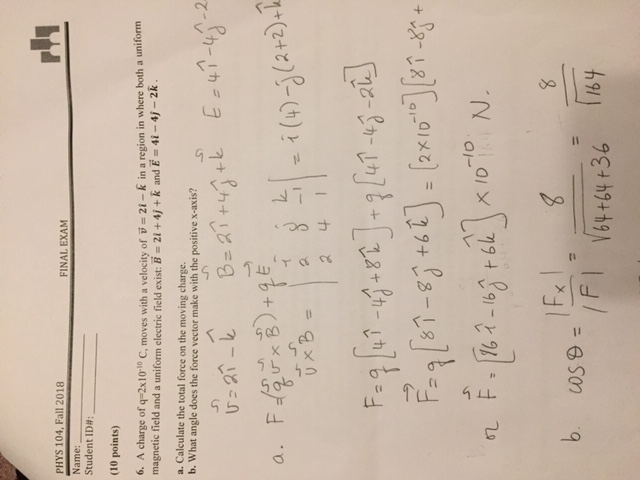 PHYS 104, Fall 2018 FINAL EXAM
Name: ____________
Student ID#: ____________
(10 points)
6. A charge of q=2x10⁻¹⁰ C, moves with a velocity of v⃗ = 2î − k̂ in a region in where both a uniform
magnetic field and a uniform electric field exist: B⃗ = 2î + 4ĵ + k̂ and E⃗ = 4î − 4ĵ − 2k̂ .
a. Calculate the total force on the moving charge.
b. What angle does the force vector make with the positive x-axis?
v⃗ = 2î − k̂ B⃗ = 2î + 4ĵ + k̂ E = 4î − 4ĵ − 2
a. F = (q v⃗ × B⃗) + q E⃗
i j k
v⃗ × B⃗ = | 2 0 −1 | = i(4) − j(2+2) + k̂
2 4 1
F = q [4î − 4ĵ + 8k̂] + q [4î − 4ĵ − 2k̂]
F⃗ = q [8î − 8ĵ + 6k̂] = [2×10⁻¹⁰] [8î − 8ĵ +
or F⃗ = [16î − 16ĵ + 6k̂] × 10⁻¹⁰ N.
b. cos θ = |Fx| / |F| = 8 / √(64+64+36) = 8 / √164